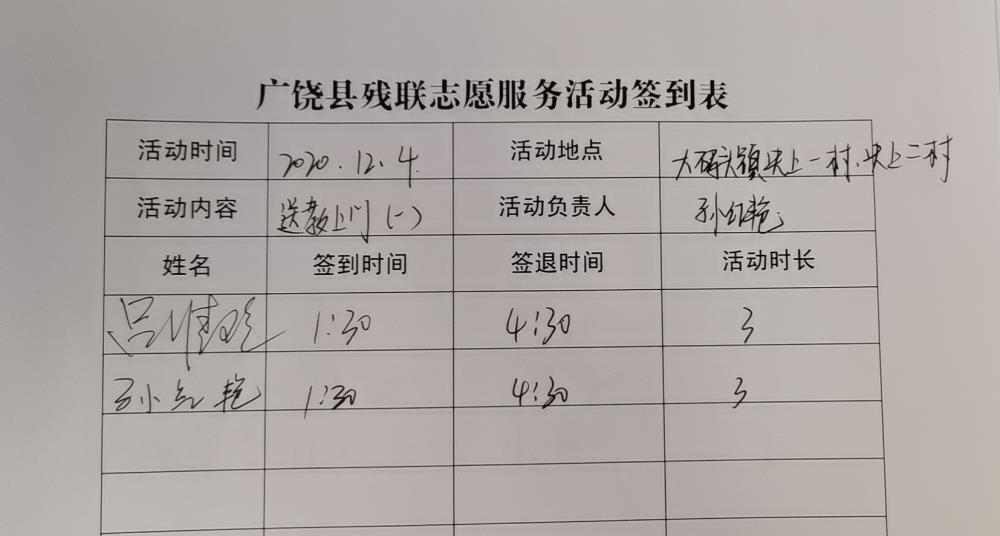 广饶县残联志愿服务活动签到表
活动时间 2020.12.4 活动地点 大码头镇央上一村、央上二村
活动内容 送教上门(一) 活动负责人 孙红艳
姓名 签到时间 签退时间 活动时长
吕 1:30 4:30 3
孙红艳 1:30 4:30 3